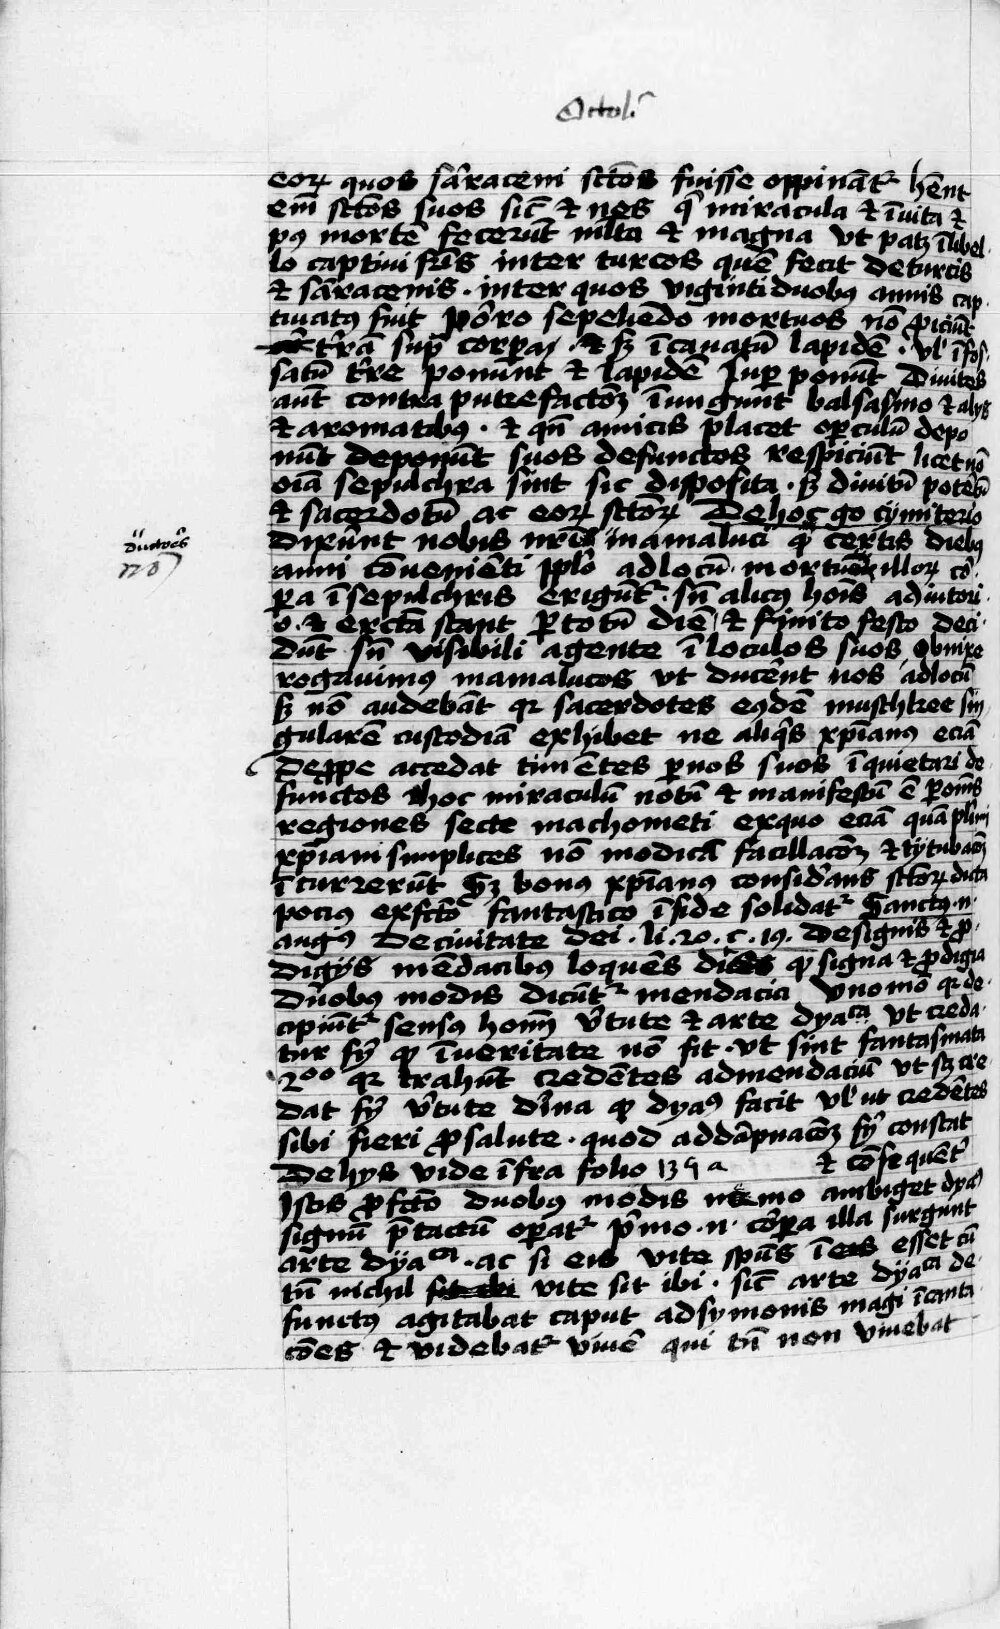 Octob̄
eoꝝ quos sar̄aceni sctōs fuisse oppinant᷑ hn̄t
em̄ sctōs suos sic̄ ⁊ nos qͥ miracula ⁊ ī vita ⁊
pꝰ mortē fecerūt mlt̄a ⁊ magna vt patꝫ ī libel-
lo captiui fr̄is inter turcos quē fecit de turcis
⁊ sar̄acenis · inter quos viginti duobꝰ annis cap
tiuatꝰ fuit Por̄ro sepeliēdo mortuos nō ꝓiciūt
tr̄rā sup̄ corpora · ⁊ sꝫ ī cauatū lapidē · vl̓ ī fos-
satū tr̄re ponunt ⁊ lapidē suꝑ ponūt Diuites
aūt contra putrefactōꝫ ī ungunt balsamo ⁊ alijs
⁊ aromatibꝰ · ⁊ qn̄ amicis placet oꝑculū depo
nūt Deponūt suos defunctos respiciūt licet nō
oīa sepulchra sint sic disposita · sꝫ diuitū potētū
⁊ sacerdotū ac eoꝝ sctōꝝ De hoc ḡo cymiterio
Dixūnt nobis nr̄i mamaluci qͩ certis diebꝰ
anni cōuenīeti pp̄lo ad locū mortuoꝝ illoꝝ cō
ꝑa ī sepulchris erigūt᷑ · sn̄ alicꝰ hoīs adiutori
o · ⁊ erc̄ta stant ꝑ totū diē ⁊ finito festo deci-
dūt sn̄ visibili agente ī loculos suos Obnixe
rogauimꝰ mamalucos vt ducēnt nos ad locū
sꝫ nō audebāt qꝛ sacerdotes eiꝰdē muschkee sin
gularē custodiā exhibet ne aliqͥs xpīanꝰ eciā
De ꝓpe accedat timētes ꝑ nos suos ī quietari de
functos Hoc miraculū notū ⁊ manifestū ē ꝑ om̄s
regiones secte machometi ex quo eciā quā plim̄i
xpīani simplices nō modicā facillacōꝫ ⁊ tytubacōꝫ
ī currerūt Sꝫ bonꝰ xpīanꝰ consid̓ans sctōꝝ dicta
pociꝰ ex fctō fantastico ī fide solidat᷑ Sanctꝰ · n ·
augꝰ De ciuitate dei · li · 20 · c · 19 · De signis ⁊ ꝓ-
digijs mēdacibꝰ loquēs dicit qͩ signa ⁊ ꝓdigia
Duobꝰ modis dicūt᷑ mendacia vno mō qꝛ de-
cipiūt᷑ sensꝰ hoīm v̓tute ⁊ arte dyaᶜᵃ vt creda-
tur fi̓ qͩ ī ueritate nō fit · vt sint fantasmata
2ᵒᵒ qꝛ trahūt credētes ad mendaciū vt sꝫ cre-
dat fi̓ v̓tute di̓na qͩ dyaꝰ facit vl̓ ut credētes
sibi fieri ꝓ salute · quod ad dāpnacōꝫ fi̓ constat
De hijs vide ī fra folio 139 a ⁊ cōsequēt̓
Istis ꝓfctō duobꝰ modis nemo ambiget dyaꝰ
signū p̄tactū operat᷑ pͥmo · n · corꝑa illa surgunt
arte dyaᶜᵃ · ac si eis vite spūs ī eis esset cū
tn̄ nichil vite sit ibi · sic̄ arte dyaᶜᵃ de
functꝰ agitabat caput ad symonis magi ī canta
cōes ⁊ videbat᷑ viuē qui tn̄ non viuebat